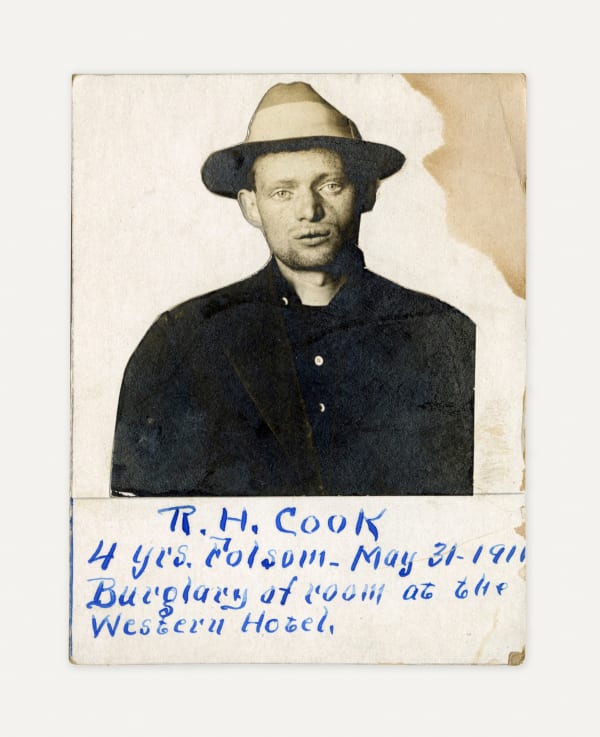 R. H. COOK
4 yrs. Folsom - May 31-1911
Burglary of room at the
Western Hotel.